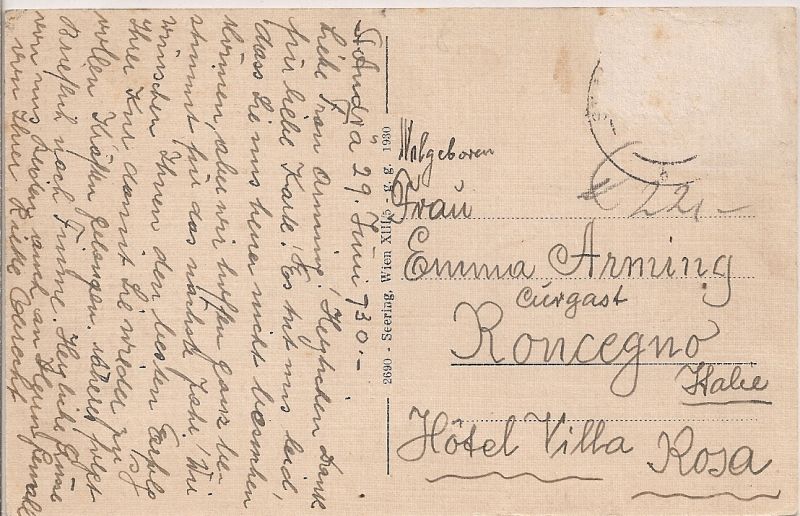 St Andrä 29. Juni 930.-
Liebe Frau Arming! Herzlichen Dank
für liebe Karte! Es tut uns leid,
dass Sie uns heuer nicht besuchen
können, aber wir hoffen ganz be-
stimmt für das nächste Jahr. Wir
wünschen Ihnen den besten Erfolg
Ihrer Kur damit Sie wieder zu
vollen Kräften gelangen. Näheres folgt
brieflich nach Fiume. Herzliche Grüsse
von uns beiden auch an Ihren Gemahl
von Ihrer
2690 - Seering, Wien XIII/5 - g. g. 1930
Wolgeboren
Frau
22-
Emma Arming
Curgast
Roncegno
Italie
Hôtel Villa Rosa